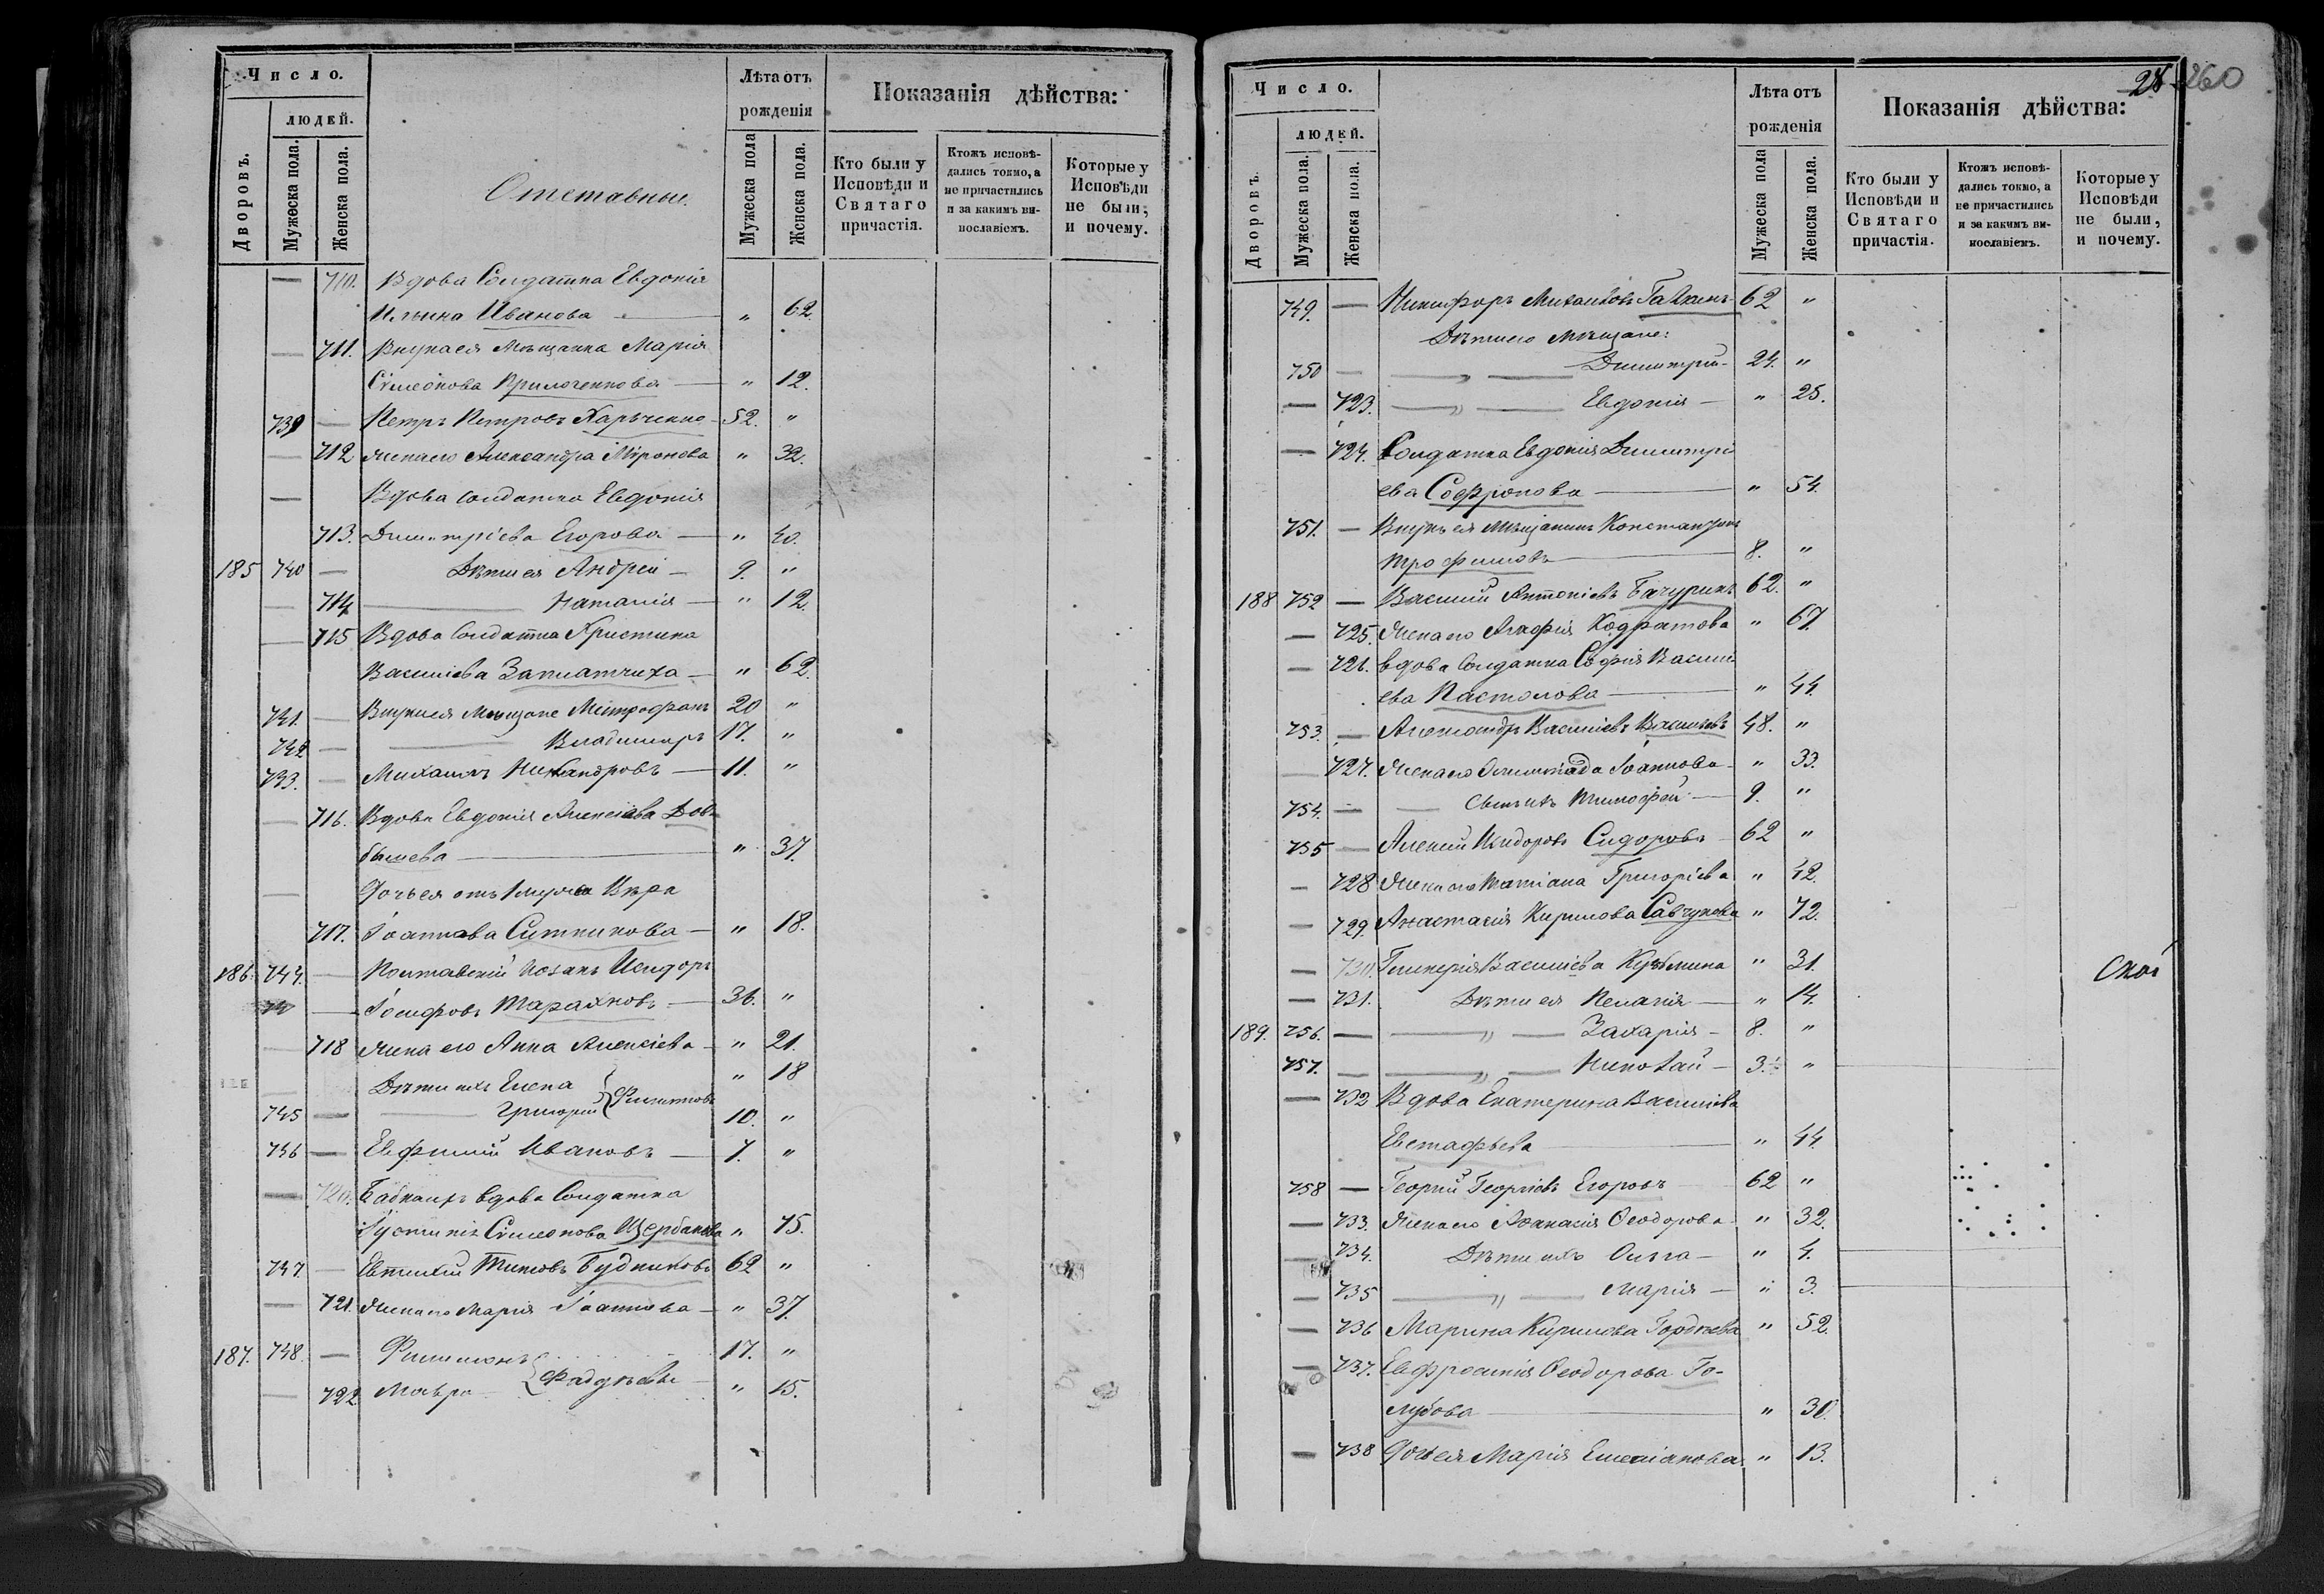 Число.
людей.
Дворовъ.
Мужеска пола.
Женска пола.
Отставные.
Лѣта отъ рожденія
Мужеска пола
Женска пола.
Показанія дѣйства:
Кто были у Исповѣди и Святаго причастія.
Ктожъ исповѣдались токмо, а не причастились и за какимъ винословіемъ.
Которые у Исповѣди не были, и почему.
— 710. Вдова Солдатка Евдокія
Ильина Иванова — " 62.
— 711. Внука ея Мѣщанка Марія
Симеонова — " 12.
739 — Петръ Петровъ Харьченко — 52. "
— 712 Жена его Александра Миронова " 32.
— Вдова солдатка Евдокія
713. Димитріева Егорова — " 40.
185 740 — Дѣти ея Андрей — 9. "
— 714 — Наталія — " 12.
— 715 Вдова Солдатка Христина
Василіева Заплатчиха — " 62.
741. — Внуки ея Мѣщане Митрофанъ 20 "
742 — Владимиръ 17. "
733. — Михаилъ Никандровъ — 11. "
— 716. Вдова Евдокія Алексіева Дов-
бышева — " 37.
— Дочь ея отъ 1 мужа Вѣра
717. Іоаннова Ситникова — " 18.
186. 744. — Полтавскій Козакъ Исидоръ
— Іосифовъ — 36. "
— 718 Жена его Анна Алексіева — " 21.
Дѣти ихъ Елена " 18
745 — Григорій 10. "
746 — Евфимій Ивановъ — 7. "
— 720. Бабка ихъ вдова Солдатка
Іустинія Симеонова Щербакова " 75.
747. — Евтихій Титовъ Будниковъ 62 "
— 721. Жена его Марія Іоаннова — " 37.
187. 748. — Филимонъ 17. "
Фадѣевы
— 722 Мавра — " 15.
28 260
Число.
людей.
Дворовъ.
Мужеска пола.
Женска пола.
Лѣта отъ рожденія
Мужеска пола
Женска пола.
Показанія дѣйства:
Кто были у Исповѣди и Святаго причастія.
Ктожъ исповѣдались токмо, а не причастились и за какимъ винословіемъ.
Которые у Исповѣди не были, и почему.
749. — Никифоръ Михаиловъ Галкинъ 62 "
Дѣти его Мѣщане:
750 — — " — Димитрій — 24. "
— 723. — " — Евдокія — " 25.
— 724. Солдатка Евдокія Димитрі
ева Софронова — " 54.
751. — Внукъ ея Мѣщанинъ Константинъ
Трофимовъ — 8. "
188 752 — Василій Антоніевъ Бачуринъ 62. "
— 725. Жена его Агафія Кодратова " 67.
— 726. вдова Солдатка Софія Васили
ева Пастолова — " 44.
753. — Александръ Василіевъ Васильевъ 48. "
— 727. Жена его Олимпіада Іоаннова — " 33.
754. — — Сынъ ихъ Тимофей — 9. "
755 — Алексій Исидоровъ Сидоровъ 62 "
— 728 Жена его Татіана Григоріева " 42.
— 729. Анастасія Кирилова Савчукова " 72.
— 730. Гликерія Василіева Кузьмина " 31.
Скаi
— 731. Дѣти ея Пелагія — " 14.
189. 756. — — " — Захарія — 8. "
757. — — " — Николай — 3. "
— 732 Вдова Екатерина Василіева
Евстафьева — " 44.
758 — Георгій Георгіевъ Егоровъ 62 "
— 733. Жена его Афанасія Ѳеодорова — " 32.
— 734. Дѣти ихъ Ольга — " 4.
— 735 — " — Марія — " 3.
— 736 Марина Кирилова Гордѣева " 52.
— 737. Евфросинія Ѳеодорова Го-
лубова — " 30.
— 738 Дочь ея Марія Емеліанова " 13.